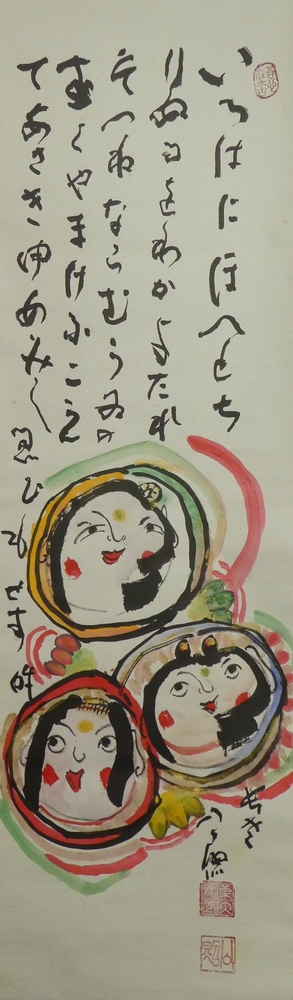 いろはにほへとち
りぬるをわかよたれ
そつねならむうゐの
おくやまけふこえ
てあさきゆめみし
ゑひもせす